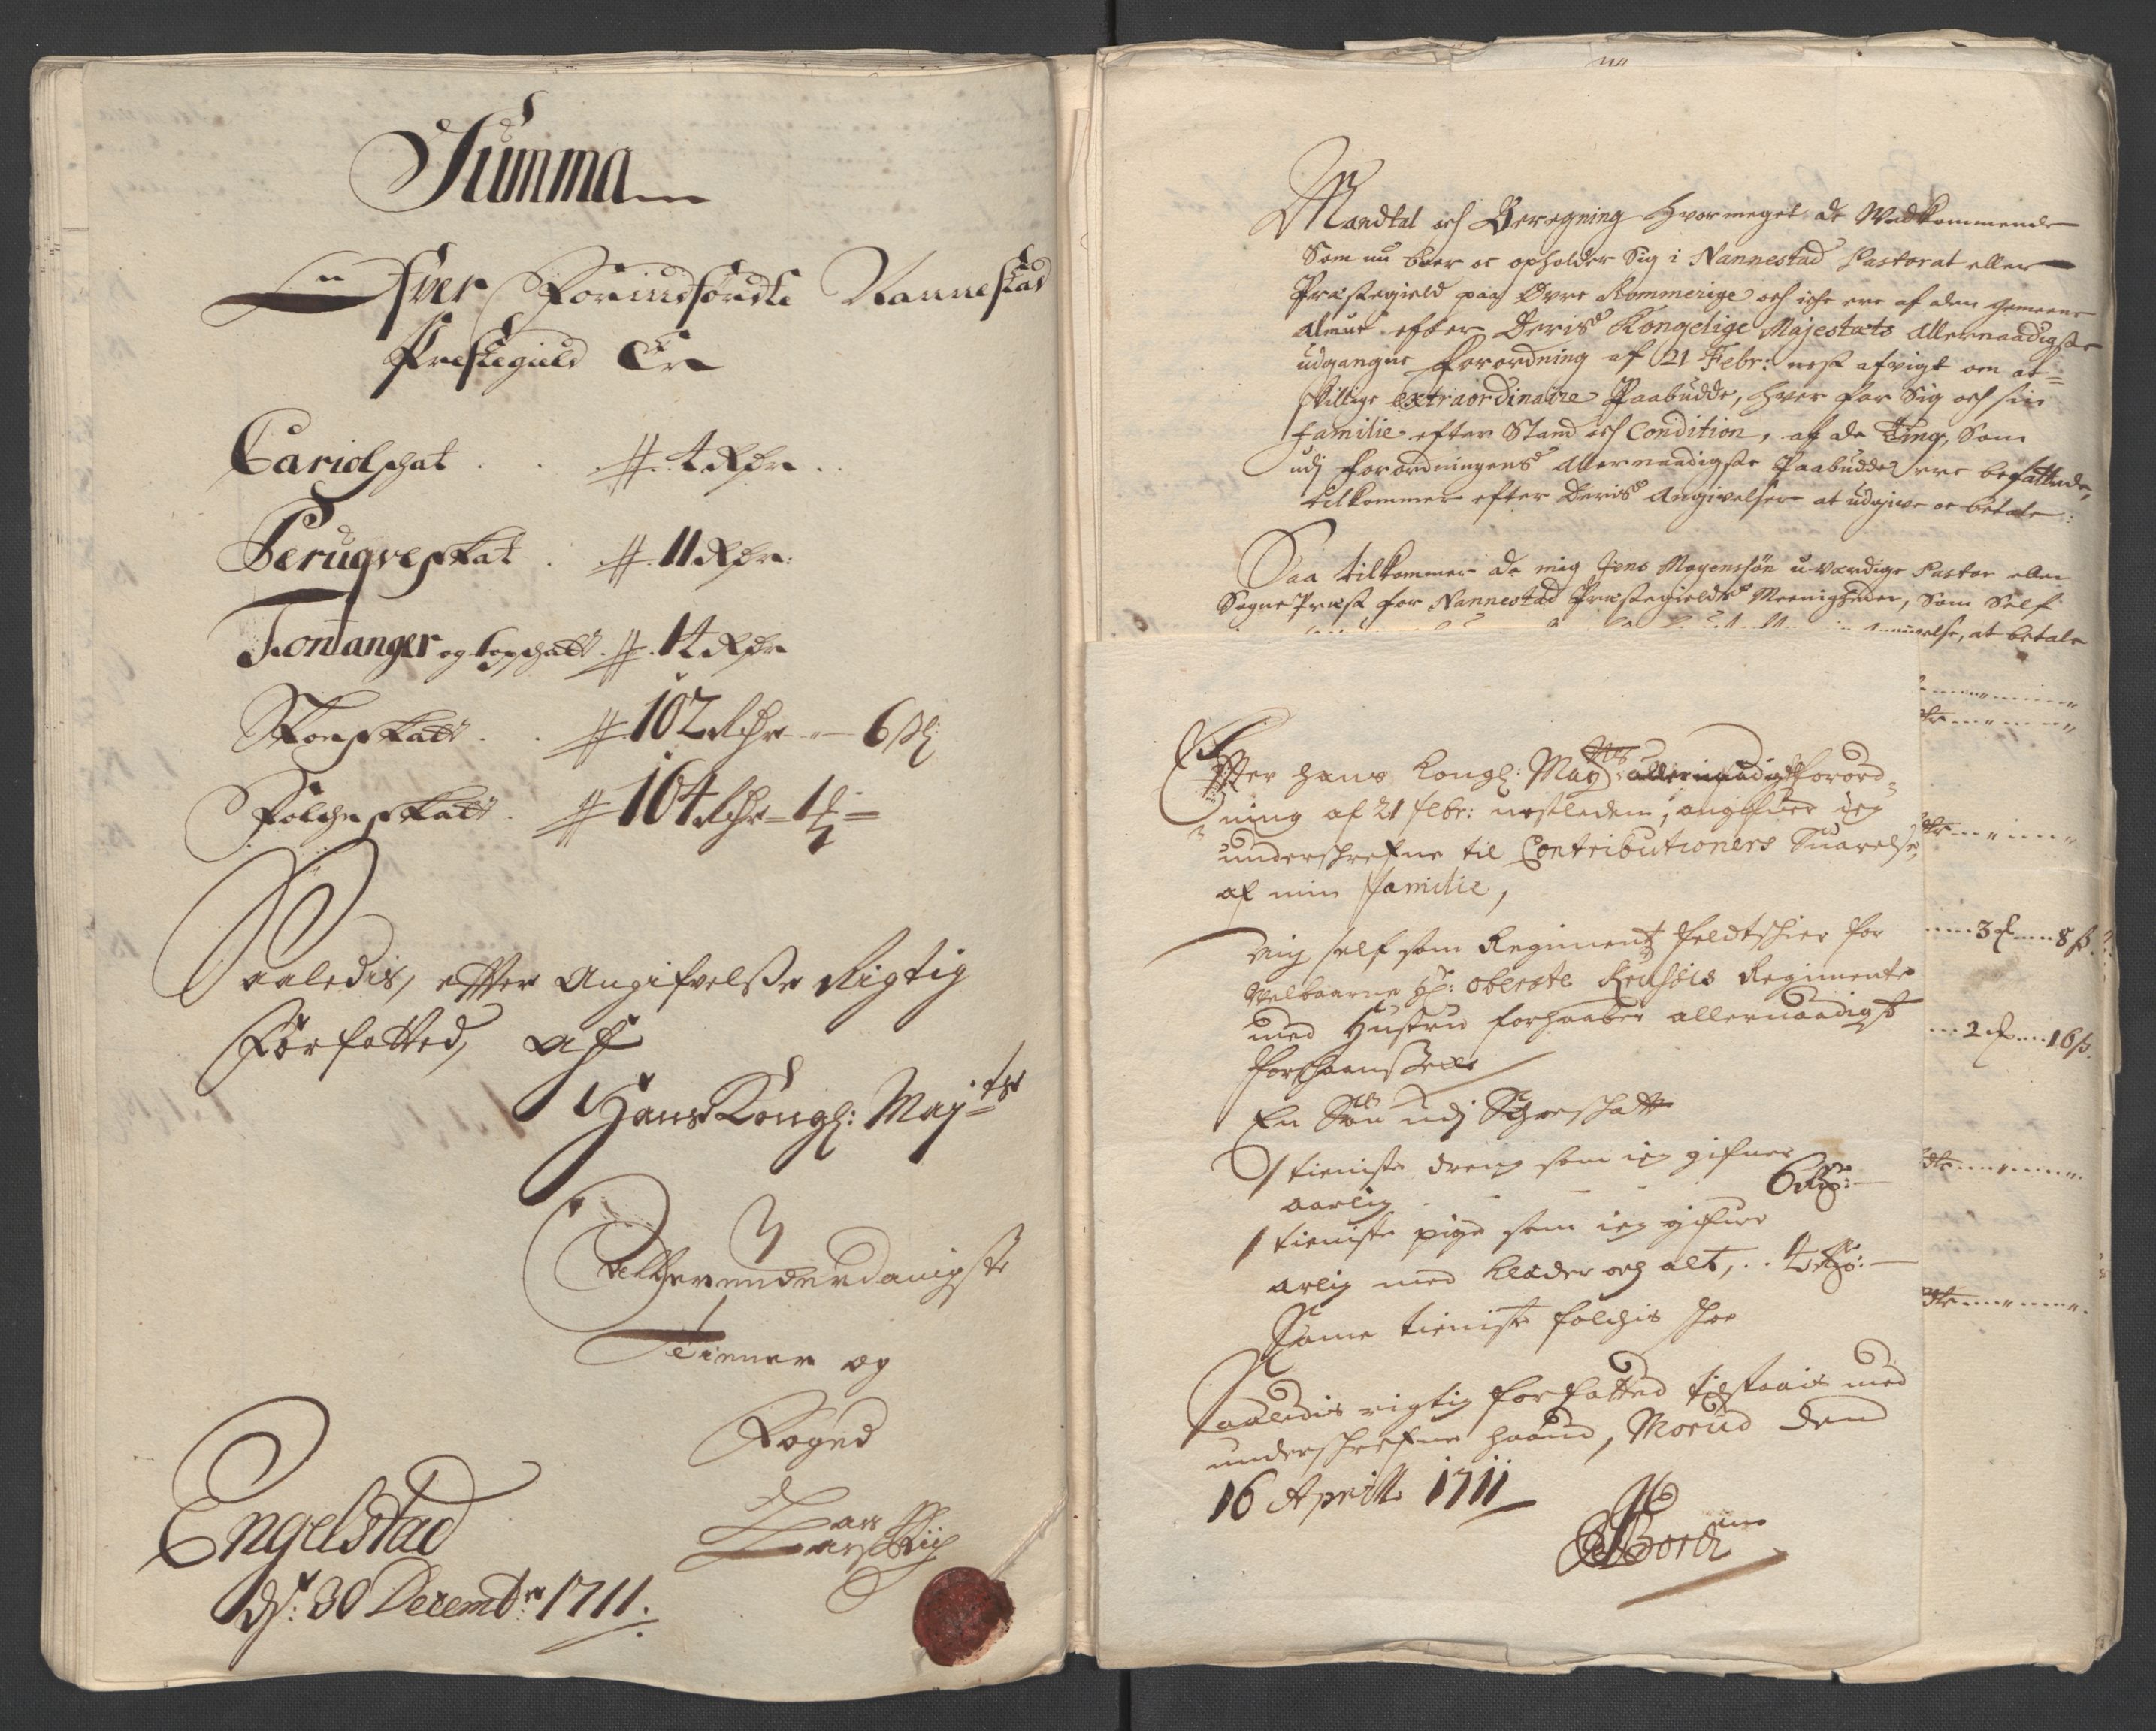 Summa
Ofver Forindførdte Nannestad
Prestegield Er
Cariolschat . . # 4 Rdr ..
Perugveskat . # 11 Rdr:
Fontanger og topschatt . # 14 Rdr
Skoeskatt . . # 102 Rdr - 6 β
Folcheskatt . # 164 Rdr - 1
Saaledis, effter Angifvelße Rigtig
Forfatted, af
Hans Kongl: Maj:ts
Allerunderdanigste
Tienner og
Foged
Engelstad
d: 30 Decembr 1711.
Mandtal och Beregning Hvormeget de Wedkommende
Som nu boer oc opholder Sig i Nannestad Pastorat eller
Præstegield paa Øvre Rommerige och iche ere af den gemeene
Almue efter Deris Kongelige Majestæts Allernaadigste
udgangne Forordning af 21 Febr: nest afvigt om at=
skillige extraordinaire Paabudde, hver for Sig och sin
Familie efter Stand och Condition, af de Ting, Som
udj Forordningens Allernaadigste Paabudde ere befattede,
tilkommer efter Deris Angivelser at udgive oc betale:
Saa tilkommer de mig Jens Mogenssøn u-værdige Pastor eller
Sogne Præst for Nannestad Præstegields Meenigheder, Som Self
at betale
3 8 β.
2 16 β.
Effter Hans Kongl: May:tts allernaadigst forord=
ning af 21 febr: nestleden, angifuer ieg
underschrefne til Contributioners Suarelse,
af min familie,
Mig self som Regimentz feldtskier for
Velbaarne Hr: Oberste Kruses Regimente
med Hustru forhaaber allernaadigst
En Søn udj
1 tieniste dreng som ieg gifuer
aarlig . - - 6 Rdr:
1 tieniste pige som ieg gifuer
arlig med Klæder och alt, . . 4 Rdr:
Same tieniste folchis skoe
Saaledis rigtig forfatted tilstaais med
underschrefne haand, Morud den
16 Aprill 1711